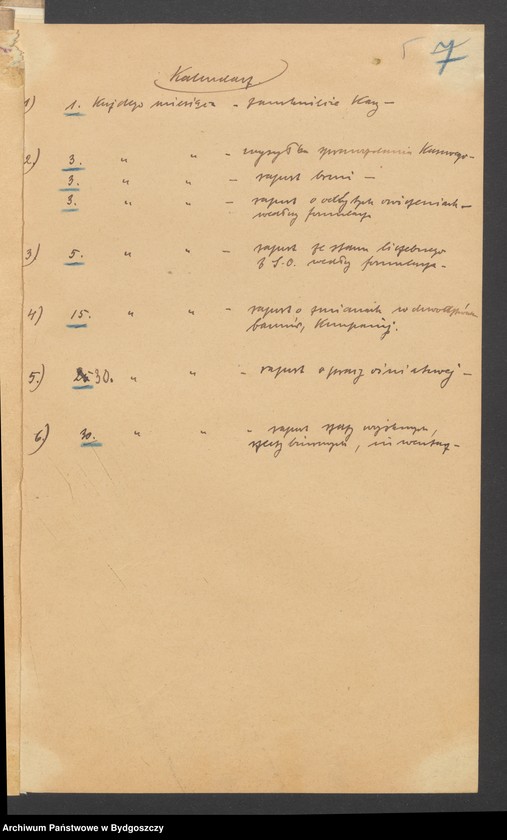 7
Kalendarz
1) 1. Każdego miesiąca - zamknięcie Kasy -
2.) 3. " " - wysyłka sprawozdania Kasowego -
3. " " - raport broni -
3. " " - raport o odbytych ćwiczeniach -
według formularza
3) 5. " " - raport ze stanu liczebnego
P.S.O. według formularza -
4) 15. " " - raport o zmianach w dowództwie
baonów, Kompanij.
5.) 30. " " - raport o pracy oświatowej -
6.) 30. " " - raport
, inwentarz -
Archiwum Państwowe w Bydgoszczy